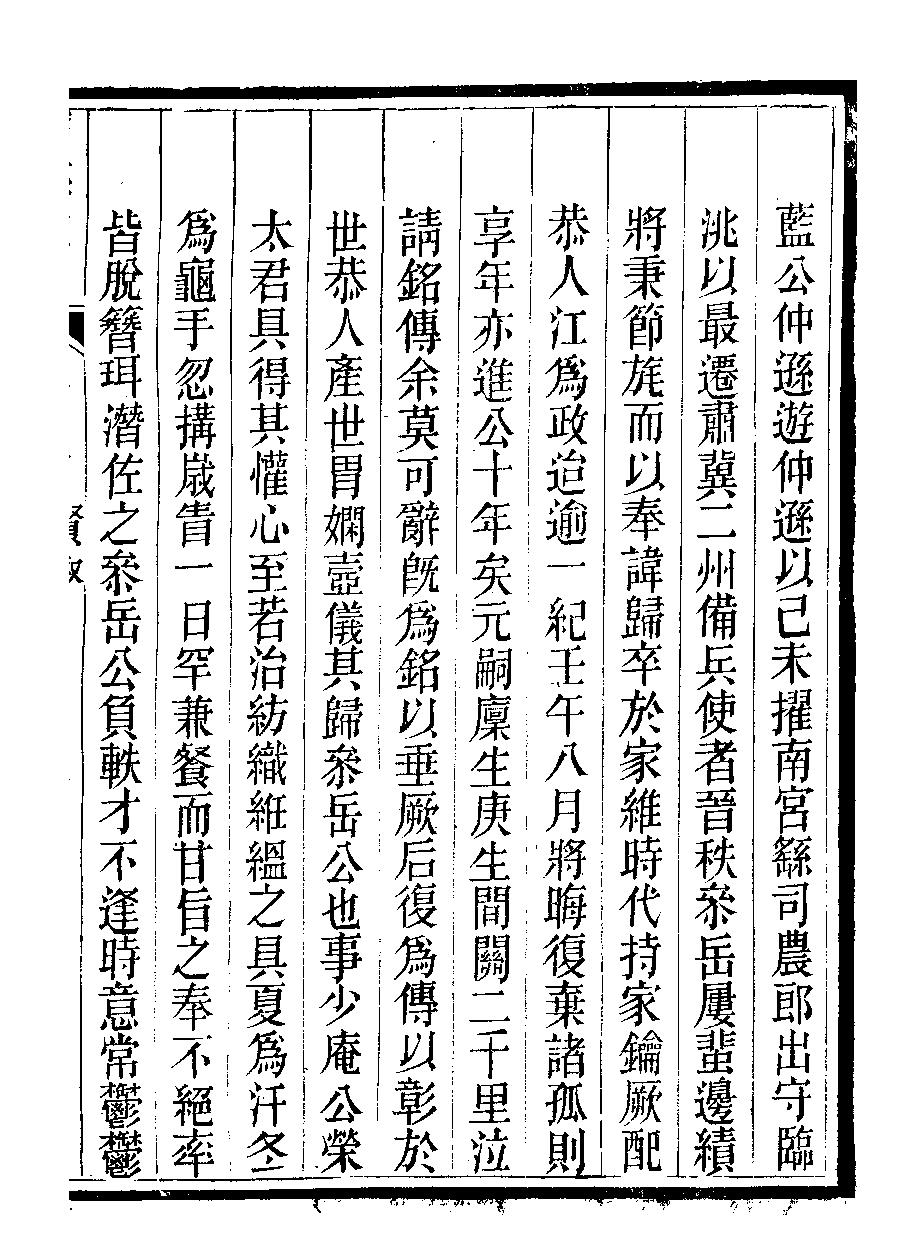 藍公仲遜遊仲遜以己未擢南宮繇司農郎出守臨
洮以最遷肅冀二州備兵使者晉秩叅岳屢蜚邊績
將秉節旄而以奉諱歸卒於家維時代持家鑰厥配
恭人江爲政迨逾一紀壬午八月將晦復棄諸孤則
享年亦進公十年矣元嗣廩生庚生間關二千里泣
請銘傳余莫可辭旣爲銘以垂厥后復爲傳以彰於
世恭人產世胄嫻壼儀其歸叅岳公也事少庵公榮
太君具得其懽心至若治紡織絍縕之具夏爲汗冬
爲龜手忽搆歲眚一日罕兼餐而甘旨之奉不絕率
皆脫簪珥潛佐之叅岳公負軼才不逢時意常鬱鬱